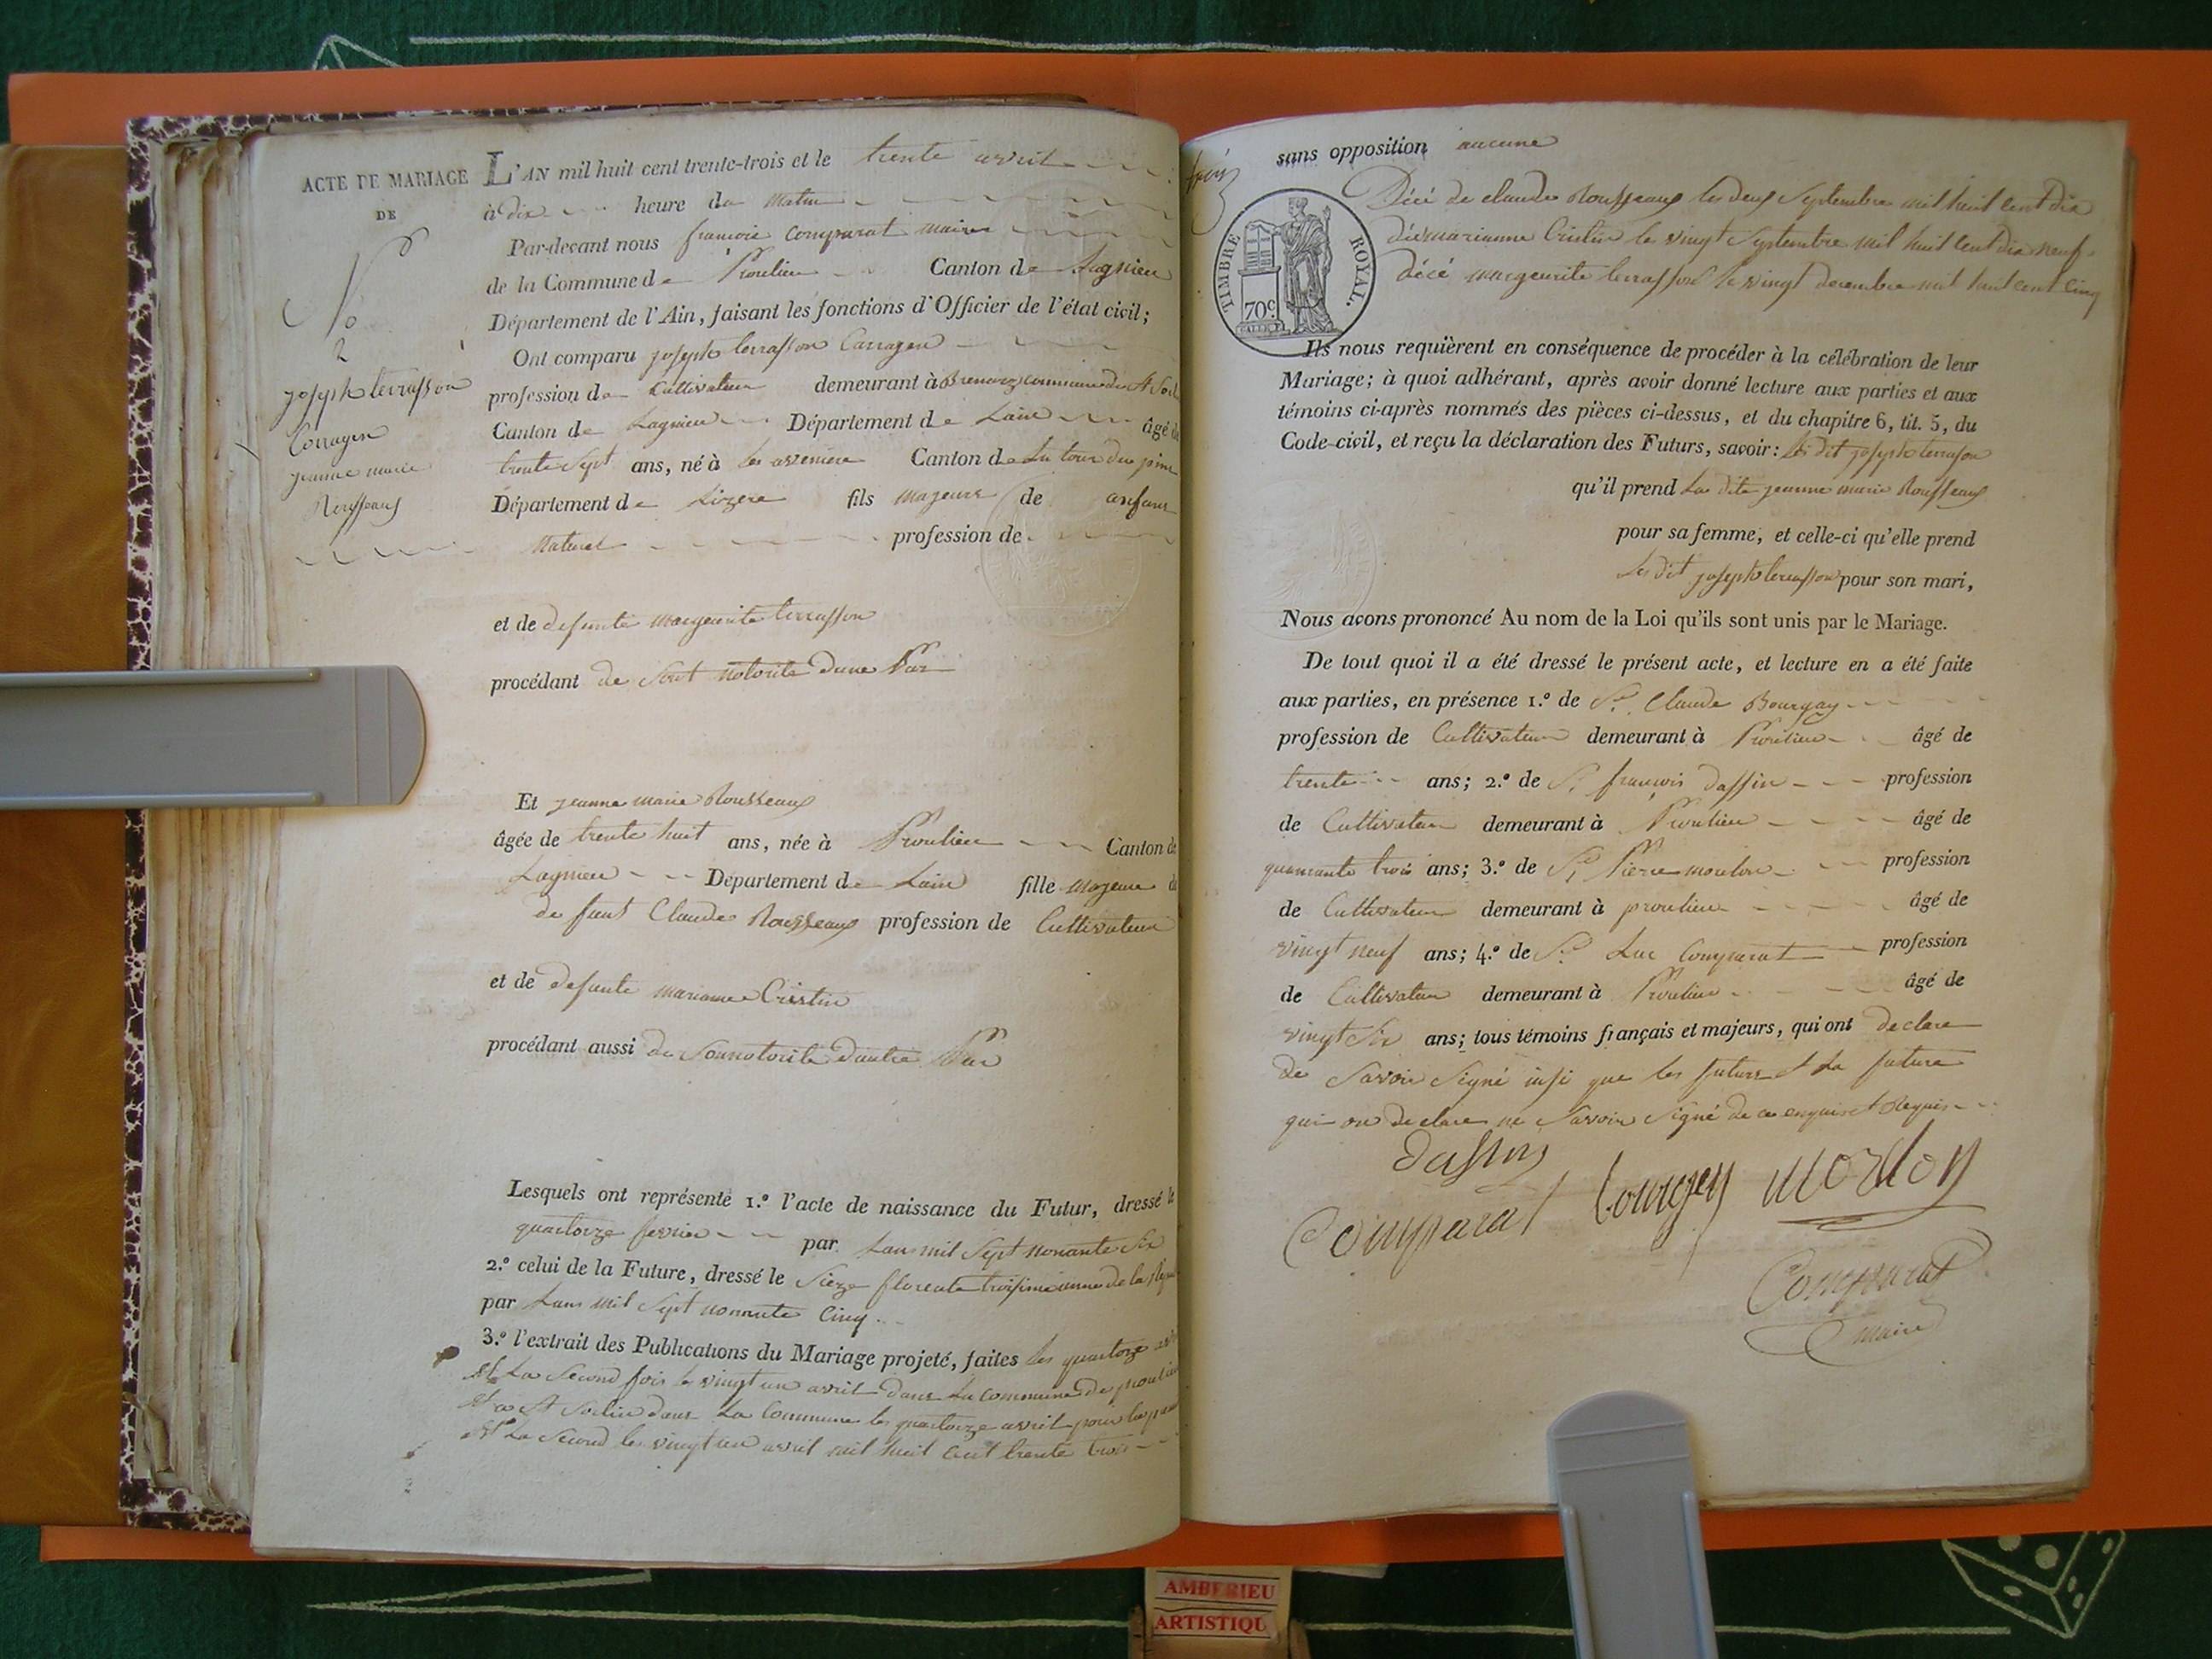 ACTE DE MARIAGE
DE
N°
2
joseph terrasson
Carragen
jeanne marie
Rousseaux
L'AN mil huit cent trente-trois et le trente avril
à dix heure du matin
Par-devant nous francois Comparat maire
de la Commune de Proulieu Canton de Lagnieu
Département de l'Ain, faisant les fonctions d'Officier de l'état civil;
Ont comparu joseph terrasson Carragen
profession de Cultivateur demeurant à commune de St Sorl
Canton de Lagnieu Département de Lain âgé de
trente Sept ans, né à les aveniere Canton de La tour du pin
Département de Lizere fils majeure de anfans
Naturel profession de
et de defunte margeurite terrasson
procédant de Sont notorite dune Par
Et jeanne marie Rousseaux
âgée de trente huit ans, née à Proulieu Canton de
Lagnieu Département de Lain fille majeure de
de funt Claude Rousseaux profession de Cultivateur
et de defunte marianne Cristin
procédant aussi de Sonnotorite Dautre Par
Lesquels ont représenté 1.º l'acte de naissance du Futur, dressé le
quartorze fevrier par Lans mil Sept nonante Six
2.º celui de la Future, dressé le Sieze floreale troisime anne de la Repu
par Lans mil Sept nonante Cinq
3.º l'extrait des Publications du Mariage projeté, faites les quartorze avril
et La Second fois le vingt un avril dans La Commune de proulieu
et a St Sorlin dans La Commune les quartorze avril pour la
et La Second les vingt un avril mil huit cent trente trois
sans opposition aucune
TIMBRE ROYAL.
70c
Décé de claude Rousseaux les deux Septembre mil huit cent dix
marianne Cristin le vingt Septembre mil huit cent dix neuf
décé margeurite terrasson le vingt decembre mil huit cent cinq
Ils nous requièrent en conséquence de procéder à la célébration de leur
Mariage; à quoi adhérant, après avoir donné lecture aux parties et aux
témoins ci-après nommés des pièces ci-dessus, et du chapitre 6, tit. 5, du
Code-civil, et reçu la déclaration des Futurs, savoir: Le dit joseph terrason
qu'il prend La dite jeanne marie Rousseaux
pour sa femme, et celle-ci qu'elle prend
Les dit joseph terrasson pour son mari,
Nous avons prononcé Au nom de la Loi qu'ils sont unis par le Mariage.
De tout quoi il a été dressé le présent acte, et lecture en a été faite
aux parties, en présence 1.º de Sr. Claude Bourgay
profession de Cultivateur demeurant à Proulieu âgé de
trente ans; 2.º de Sr francois daffin profession
de Cultivateur demeurant à Proulieu âgé de
quarante trois ans; 3.º de Sr Pierre moulon profession
de Cultivateur demeurant à proulieu âgé de
vingt neuf ans; 4.º de Sr Luc Comparat profession
de Cultivateur demeurant à Proulieu âgé de
vingt Six ans; tous témoins français et majeurs, qui ont declare
de Savoir Signé insi que les futurs et La future
qui on declare ne Savoir Signé de ce enquis et Requis
Comparat
Comparat
maire
AMBERIEU
ARTISTIQU